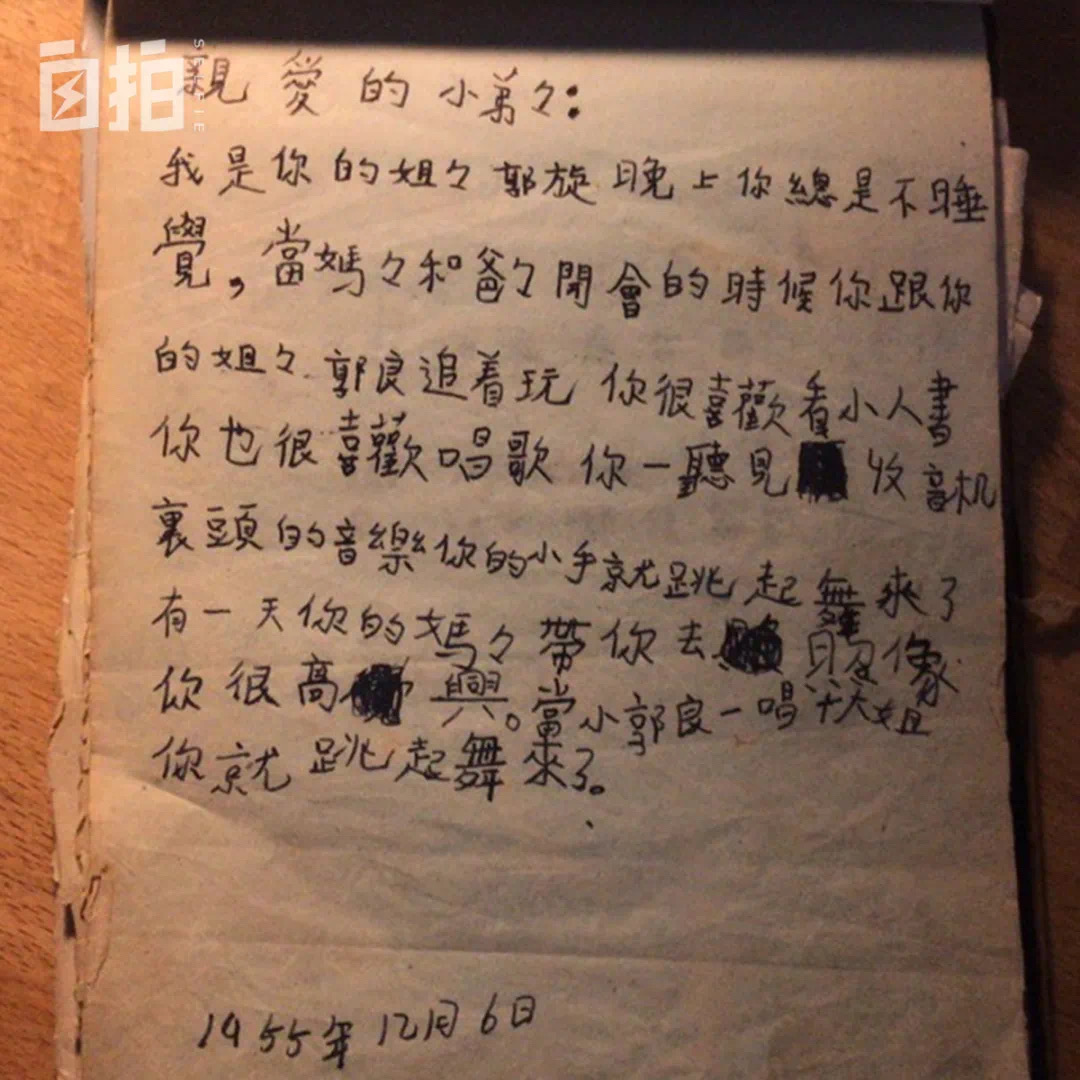 自拍
SELFIE
親愛的小弟々:
我是你的姐々郭旋晚上你總是不睡
覺,當媽々和爸々開會的時候你跟你
的姐々郭良追着玩你很喜歡看小人書
你也很喜歡唱歌你一聽見收音机
裏頭的音樂你的小手就跳起舞來了
有一天你的媽々帶你去照像
你很高興。當小郭良一唱大姐
你就跳起舞來了。
1955年12月6日